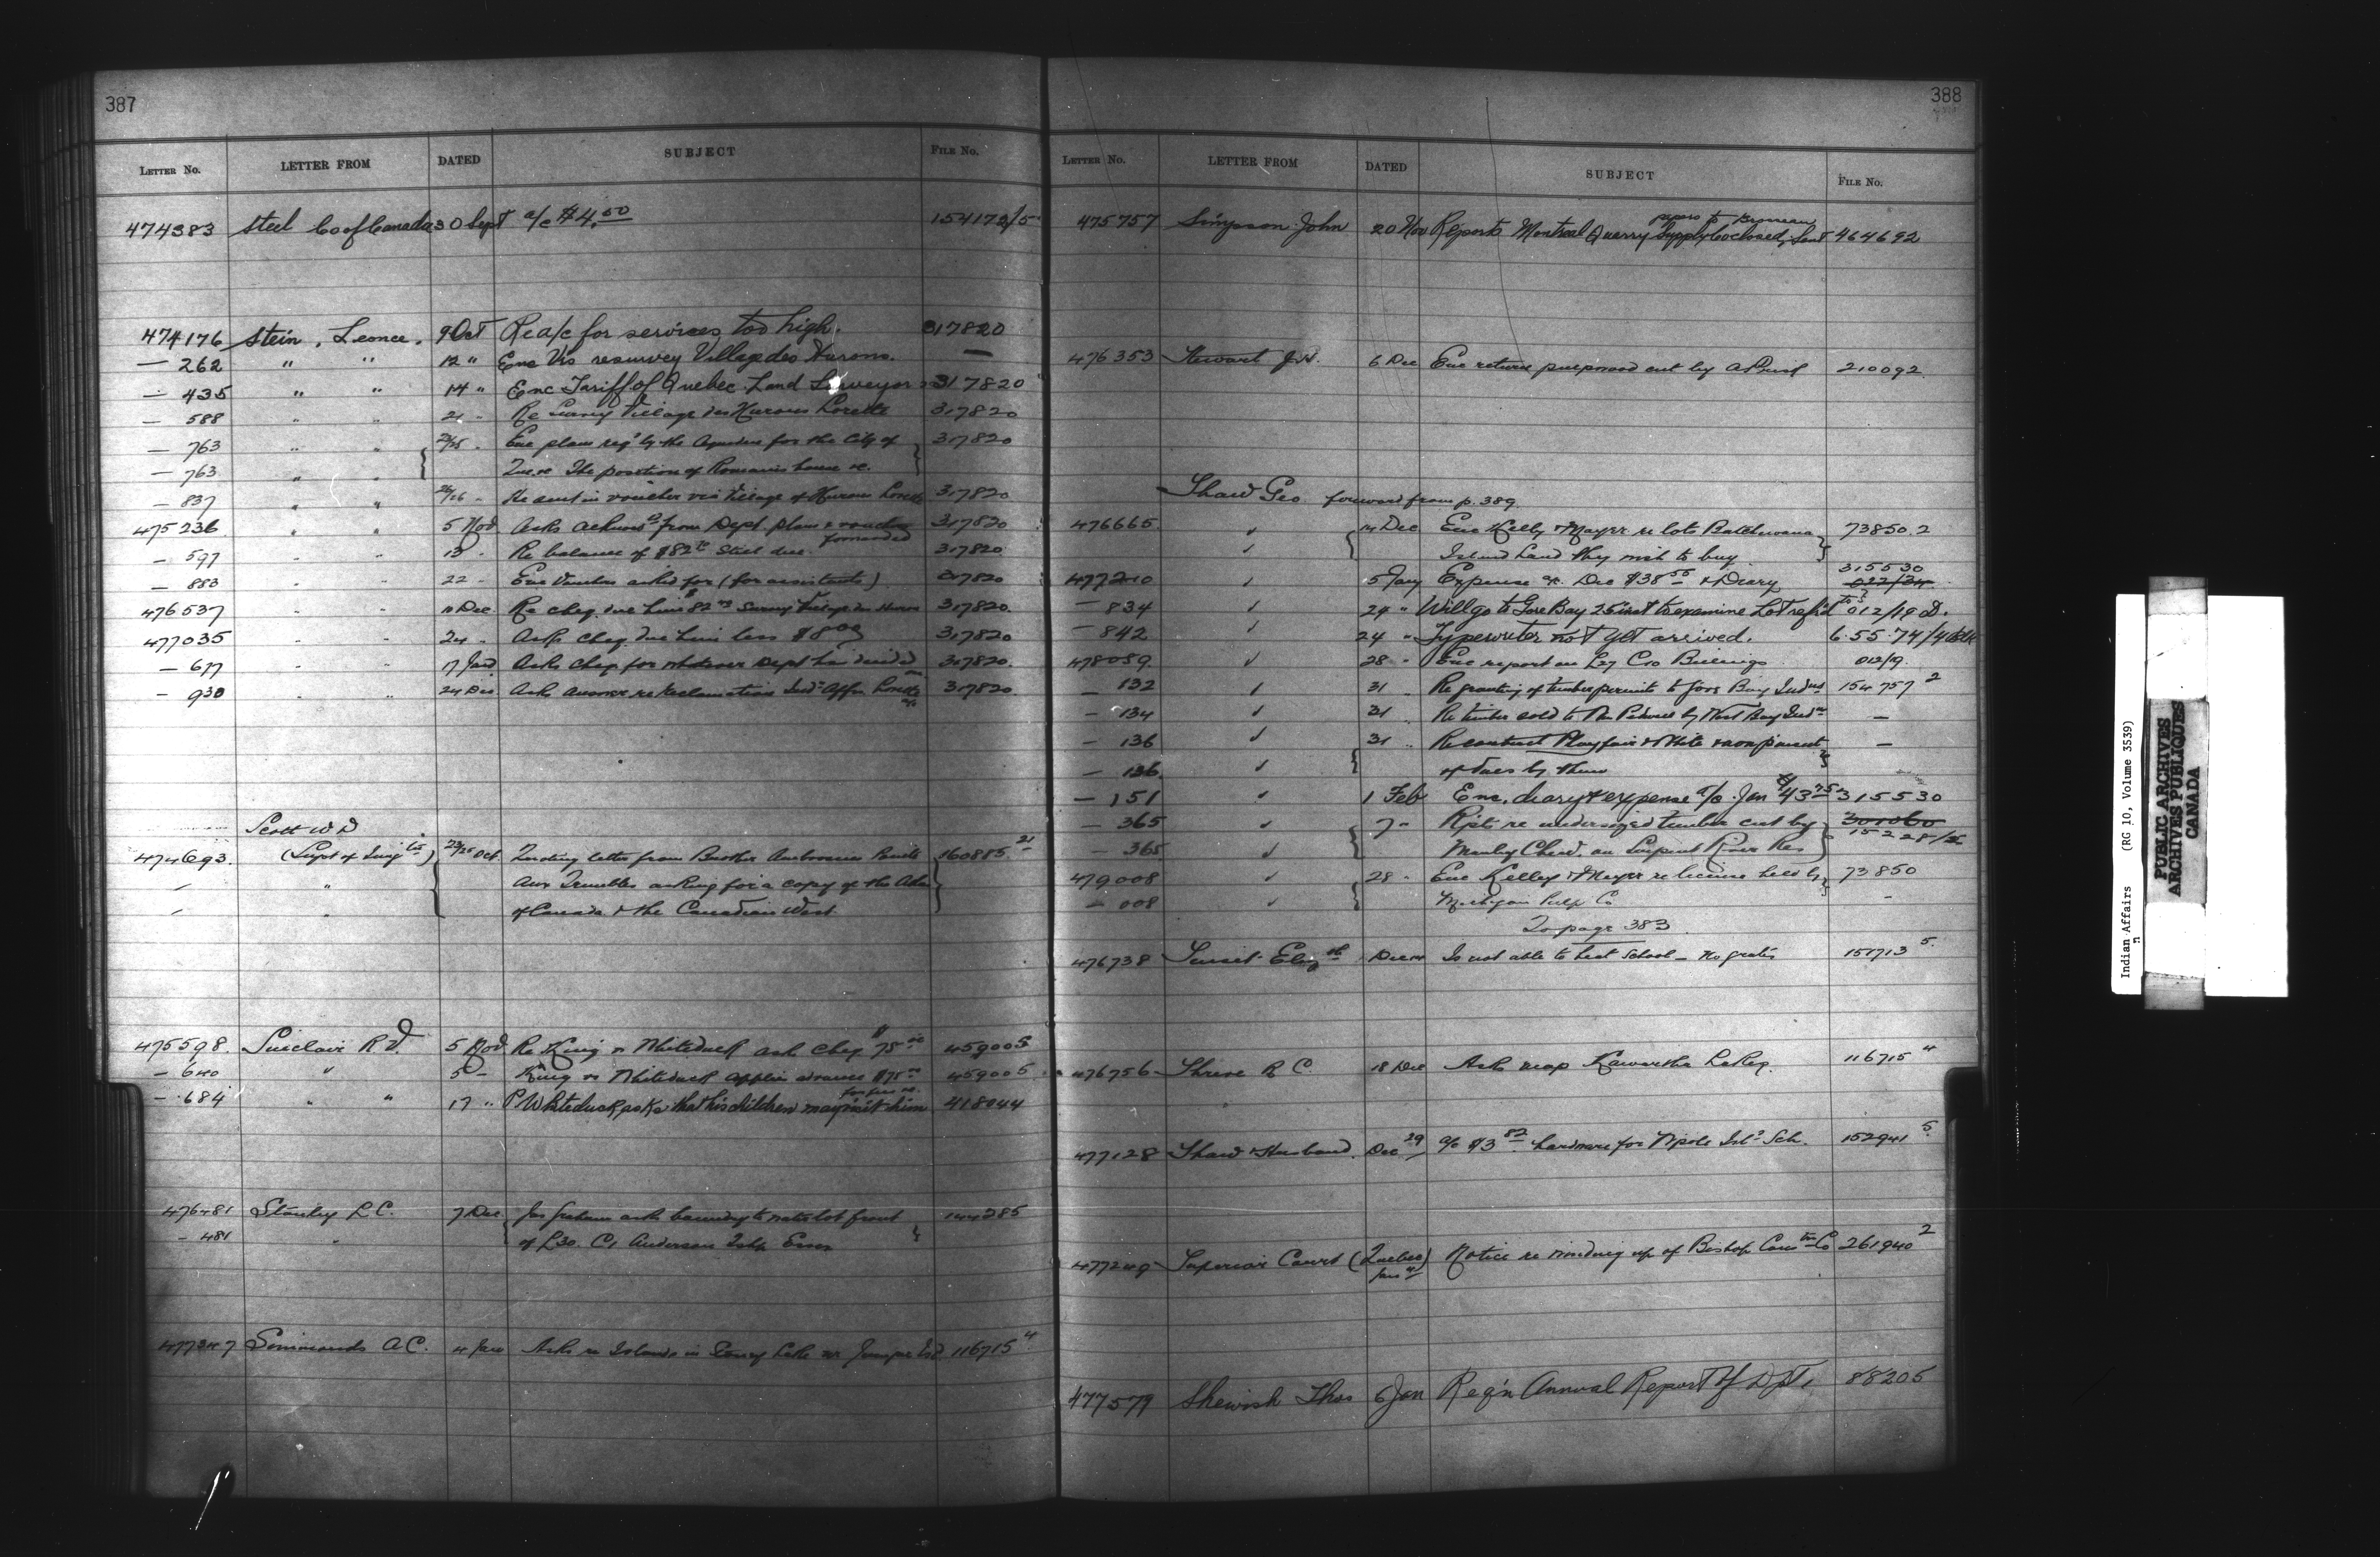 387
LETTER No. LETTER FROM DATED SUBJECT FILE No.
474383 Steel Co of Canada 30 Sept a/c $4.50 154172/5
474176 Stein, Leonce. 9 Oct Re a/c for services too high. 317820
— 262 " " 12 " Enc Vo resurvey Village des Hurons. —
— 435 " " 14 " Enc Tariff of Quebec Land Surveyors 317820
— 588 " " 21 - Re Survey Village des Hurons Lorette 317820
— 763 " " Enc plan req'd by the Aqueduc for the City of 317820
— 763 " " Que re The position of house re.
— 837 " " Re sent in voucher Village of Hurons Lorette 317820
475236 " " 5 Nov Asks from Dept plan & voucher forwarded 317820
— 597 " " 13 - Re balance of $82 Still due. 317820
— 883 - - 22 - Enc Voucher asked for (for assistants) 317820
476537 - - 10 Dec Re cheq. due him $82 Survey Village des Hurons 317820
477035 - - 24 - Asks cheq. due him less $8 00 317820
— 677 - - 17 Jan Asks cheq for whatever Dept has decided on 317820
— 930 - - 24 Dec Asks answer re reclamation Ind. Affrs Lorette 317820
Scott W D
474693. (Supt of Imig tn) 23/25 Oct. letter from Brother 160885 21
" asking for a copy of the Atlas
of Canada & the Canadian West
475598. Sinclair R V. 5 Nov Re King vs Whiteduck ask cheq $75 459005
— 640 " 5 - King vs Whiteduck applies advance $75 for fees re. 459005
— 684 " " 17 " P. Whiteduck asks that his children may visit him 418044
476481 Stanley L.C. 7 Dec Jas Graham asks boundary to water lot front 144285
— 481 " of L30. C1 Anderson Tshp Essex
477347 Simmonds A.C. 4 Jan Asks re Islands in Stoney Lake nr Juniper Isd. 116715 4
388
LETTER No. LETTER FROM DATED SUBJECT FILE No.
475757 Simpson John 20 Nov Reports Montreal Quarry Supply Co closed, Sent papers to 464692
476353 Stewart J.W. 6 Dec Enc return pulpwood cut by 210092
Shaw Geo forward from p. 389
476665 ✓ 14 Dec Enc Kelly & Mayer re lots Batchewana 73850.2
✓ Island Land they wish to buy
477210 ✓ 5 Jany Expense a/c Dec $38 55 & Diary 315530 022/34
— 834 ✓ 24 " Will go to Gore Bay 25 inst to examine Lot ref'd to 012/19 D.
— 842 ✓ 24 " Typewriter not yet arrived. 6.55.74/4
478059 ✓ 28 " Enc report on L27 C10 Billings 012/19
— 132 ✓ 31 Re granting of timber permits to Gore Bay Indns 154757 2
— 134 ✓ 31 Re timber sold to by West Bay Indns —
— 136 ✓ 31 " Re contract Playfair & White & non payment —
— 136 ✓ of dues by them
— 151 ✓ 1 Feb Enc. diary & expense a/c. Jan $43 75 315530
— 365 ✓ 7 - Rpts re undersized timber cut by 301060 15228/
— 365 ✓ Manley Chew. on Serpent River Res
479008 ✓ 28 - Enc Kelley & Meyer re license held by 73850
— 008 ✓ Michigan Pulp Co -
To page 383
476738 Sunset Eliz th Dec Is not able to heat School — No grates 151713 5.
476756 Shrive R C 18 Dec Asks map Kawartha Lakes. 116715 4
477128 Shaw Husband. Dec 29 a/c $3 82 hardware for Ind. Sch. 152941 5.
477249 Superior Court (Quebec) Jan 4 Notice re winding up of Bishop Cons tn Co 261940 2
477579 Shewish Thos 6 Jan Req'n Annual Report of Dpt. 88205
Indian Affairs (RG 10, Volume 3539)
PUBLIC ARCHIVES
ARCHIVES PUBLIQUES
CANADA